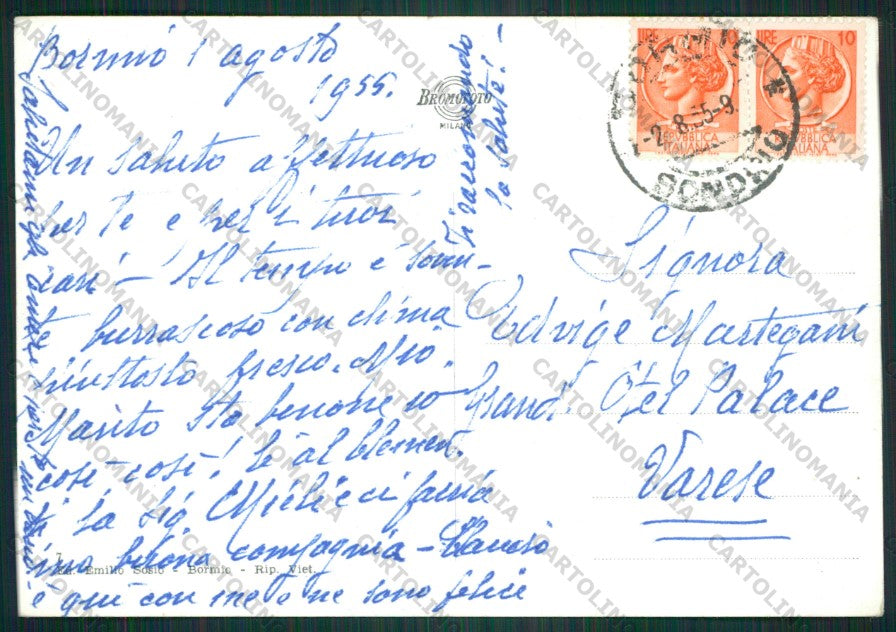 Bormio 1 agosto
1955.
Un saluto affettuoso
per te e per i tuoi
cari - Il tempo è
burrascoso con clima
piuttosto fresco. Mio
Marito sta benone io
così-così! C'è al
la Sig. e ci
buona compagnia -
è qui con me e ne sono felice
la salute! -
BROMOFOTO
MILANO
LIRE 10
REPUBBLICA
ITALIANA
LIRE 10
REPUBBLICA
ITALIANA
BORMIO
-2.8.55-9
SONDRIO
Signora
Edvige Martegani
Grand' Otel Palace
Varese
Ed. Emilio Sosio - Bormio - Rip. Viet.
CARTOLINOMANIA